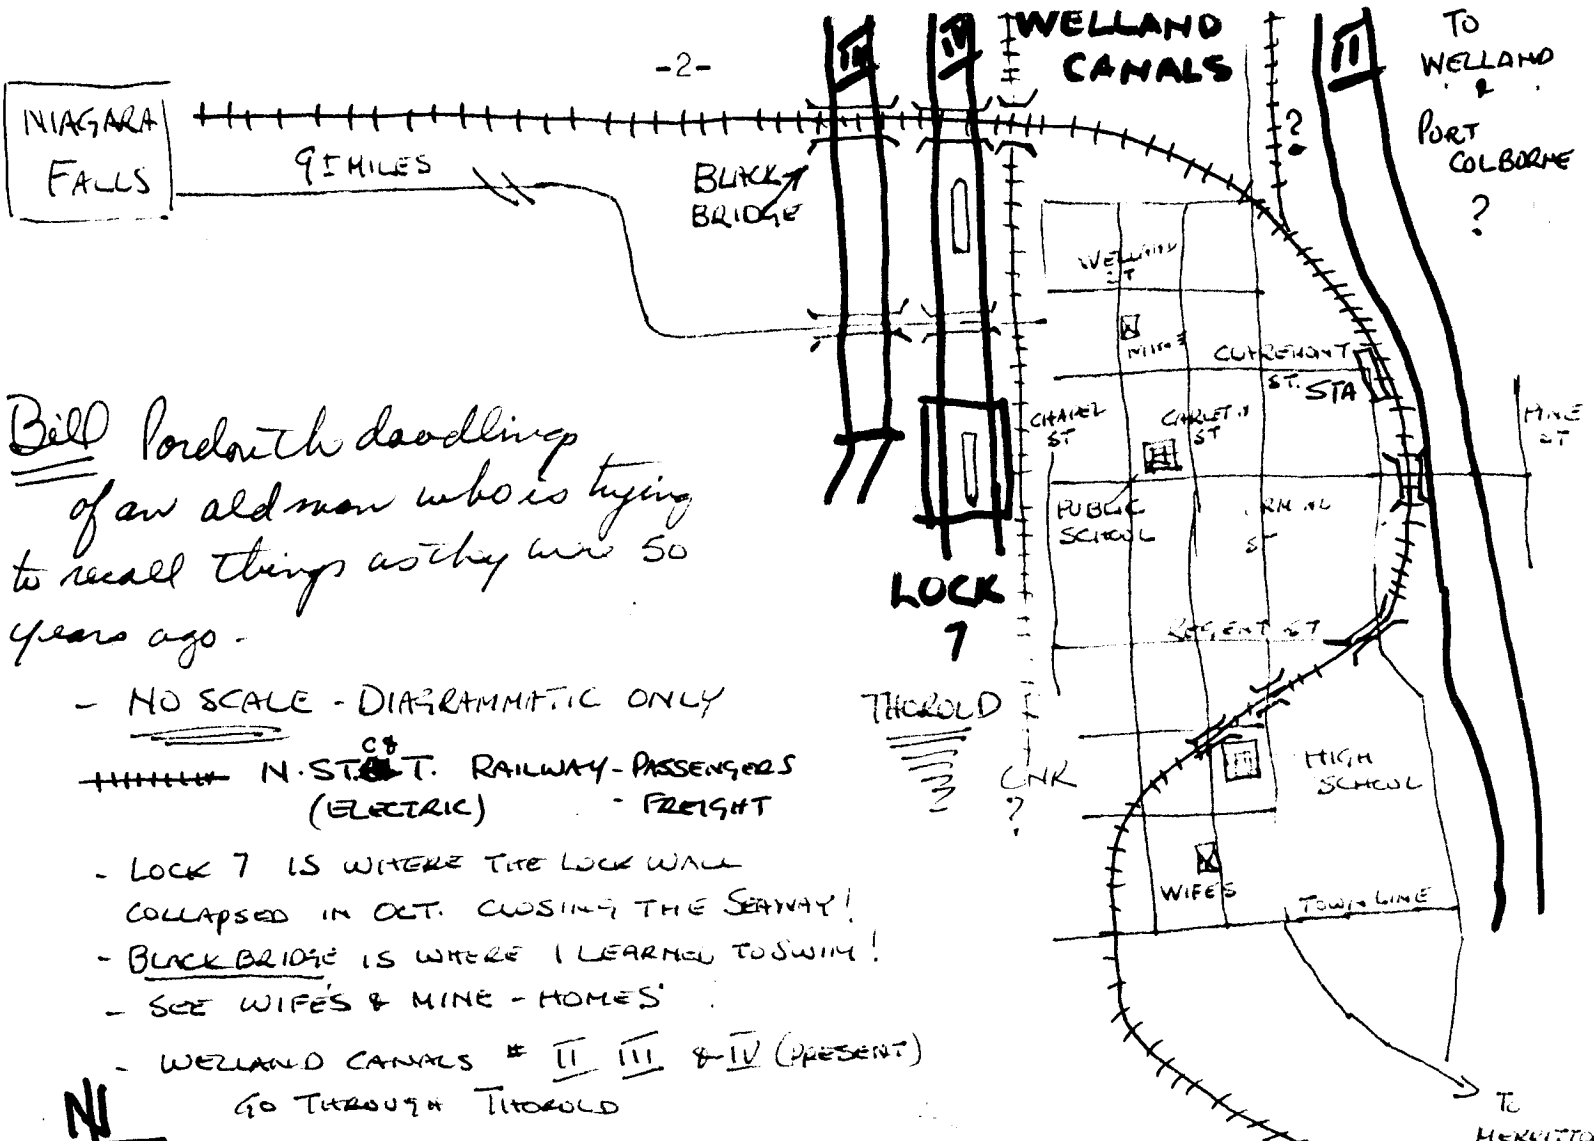 -2-
WELLAND
CANALS
III
IV
II
TO
WELLAND
&
PORT
COLBORNE
?
NIAGARA
FALLS
9± MILES
BLACK
BRIDGE
?
WELLAND
ST
MINE
CLAREMONT
ST.
STA
CHAPEL
ST
CARLETON
ST
PINE
ST
PUBLIC
SCHOOL
ST
REGENT ST
LOCK
7
THOROLD
CNR
?
HIGH
SCHOOL
WIFE'S
TOWN LINE
TO
MERRITTO
Bill Pardon the doodlings
of an old man who is trying
to recall things as they were 50
years ago.
- NO SCALE - DIAGRAMMATIC ONLY
N. ST. C & T. RAILWAY - PASSENGERS
(ELECTRIC) - FREIGHT
- LOCK 7 IS WHERE THE LOCK WALL
COLLAPSED IN OCT. CLOSING THE SEAWAY!
- BLACK BRIDGE IS WHERE I LEARNED TO SWIM!
- SEE WIFE'S & MINE - HOMES
- WELLAND CANALS # II III & IV (PRESENT)
GO THROUGH THOROLD
N